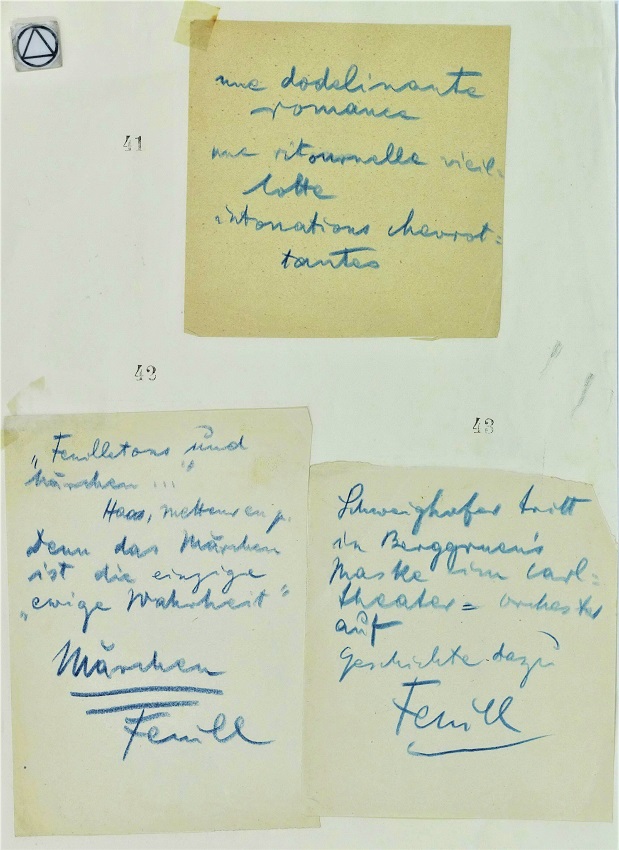 41
une dodelinante
romance
une ritournelle vieil-
lotte
intonations chevrot=
tantes
42
„Feuilletons und
Märchen ..."
Haas,
Denn das Märchen
ist die einzige
„ewige Wahrheit"
Märchen
Feuill
43
Schweighofer tritt
in Berggruen's
Maske im Carl=
theater = orchester
auf
Geschichte dazu
Feuill